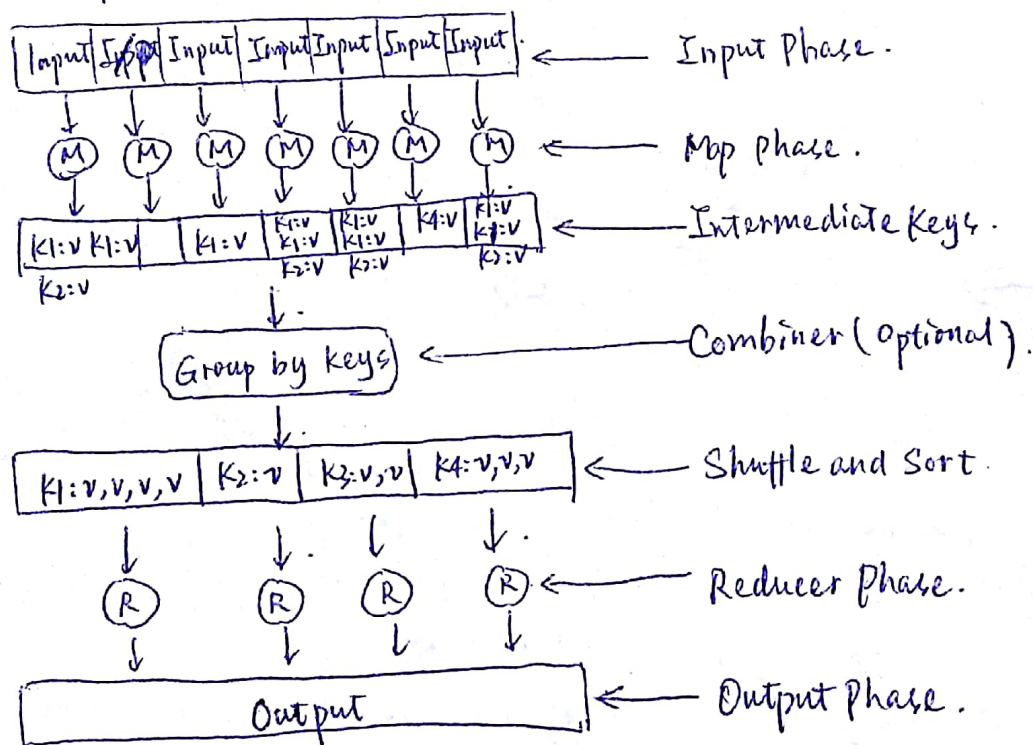 Input Input Input Input Input Input Input. Input Phase.
M M M M M M M Map phase.
K1:v K1:v K1:v K1:v K1:v K4:v K1:v Intermediate Keys.
K1:v K1:v
K2:v K2:v K2:v
Group by keys Combiner (Optional).
K1:v,v,v,v K2:v K3:v,v K4:v,v,v Shuffle and Sort.
R R R R Reducer Phase.
Output Output Phase.